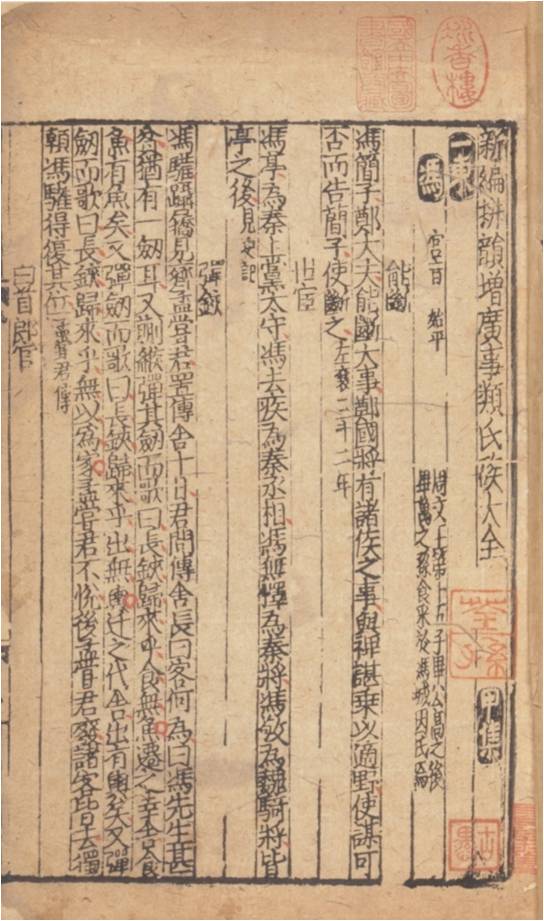 新編排韻增廣事類氏族大全
甲集
一東
馮
宮音 始平
周文王第十五子畢公高之後
畢萬之孫食采於馮城因氏焉
能斷
馮簡子鄭大夫能斷大事鄭國將有諸侯之事與裨諶乘以適野使謀可
否而告簡子使斷之左襄三十一年
世宦
馮亭為秦上黨太守馮去疾為秦丞相馮無擇為秦將馮敬為魏騎將皆
亭之後見史記
彈鋏
馮驩躡僑見齊孟嘗君置傳舍十日君問傳舍長曰客何為曰馮先生甚
貧猶有一劒耳又蒯緱彈其劒而歌曰長鋏歸來乎食無魚遷之幸舍食
魚有魚矣又彈劒而歌曰長鋏歸來乎出無輿迁之代舍出有輿矣又彈
劒而歌曰長鋏歸來乎無以為家孟嘗君不悅後孟嘗君廢諸客皆去獨
頼馮驩得復其位孟嘗君傳
白首郎官